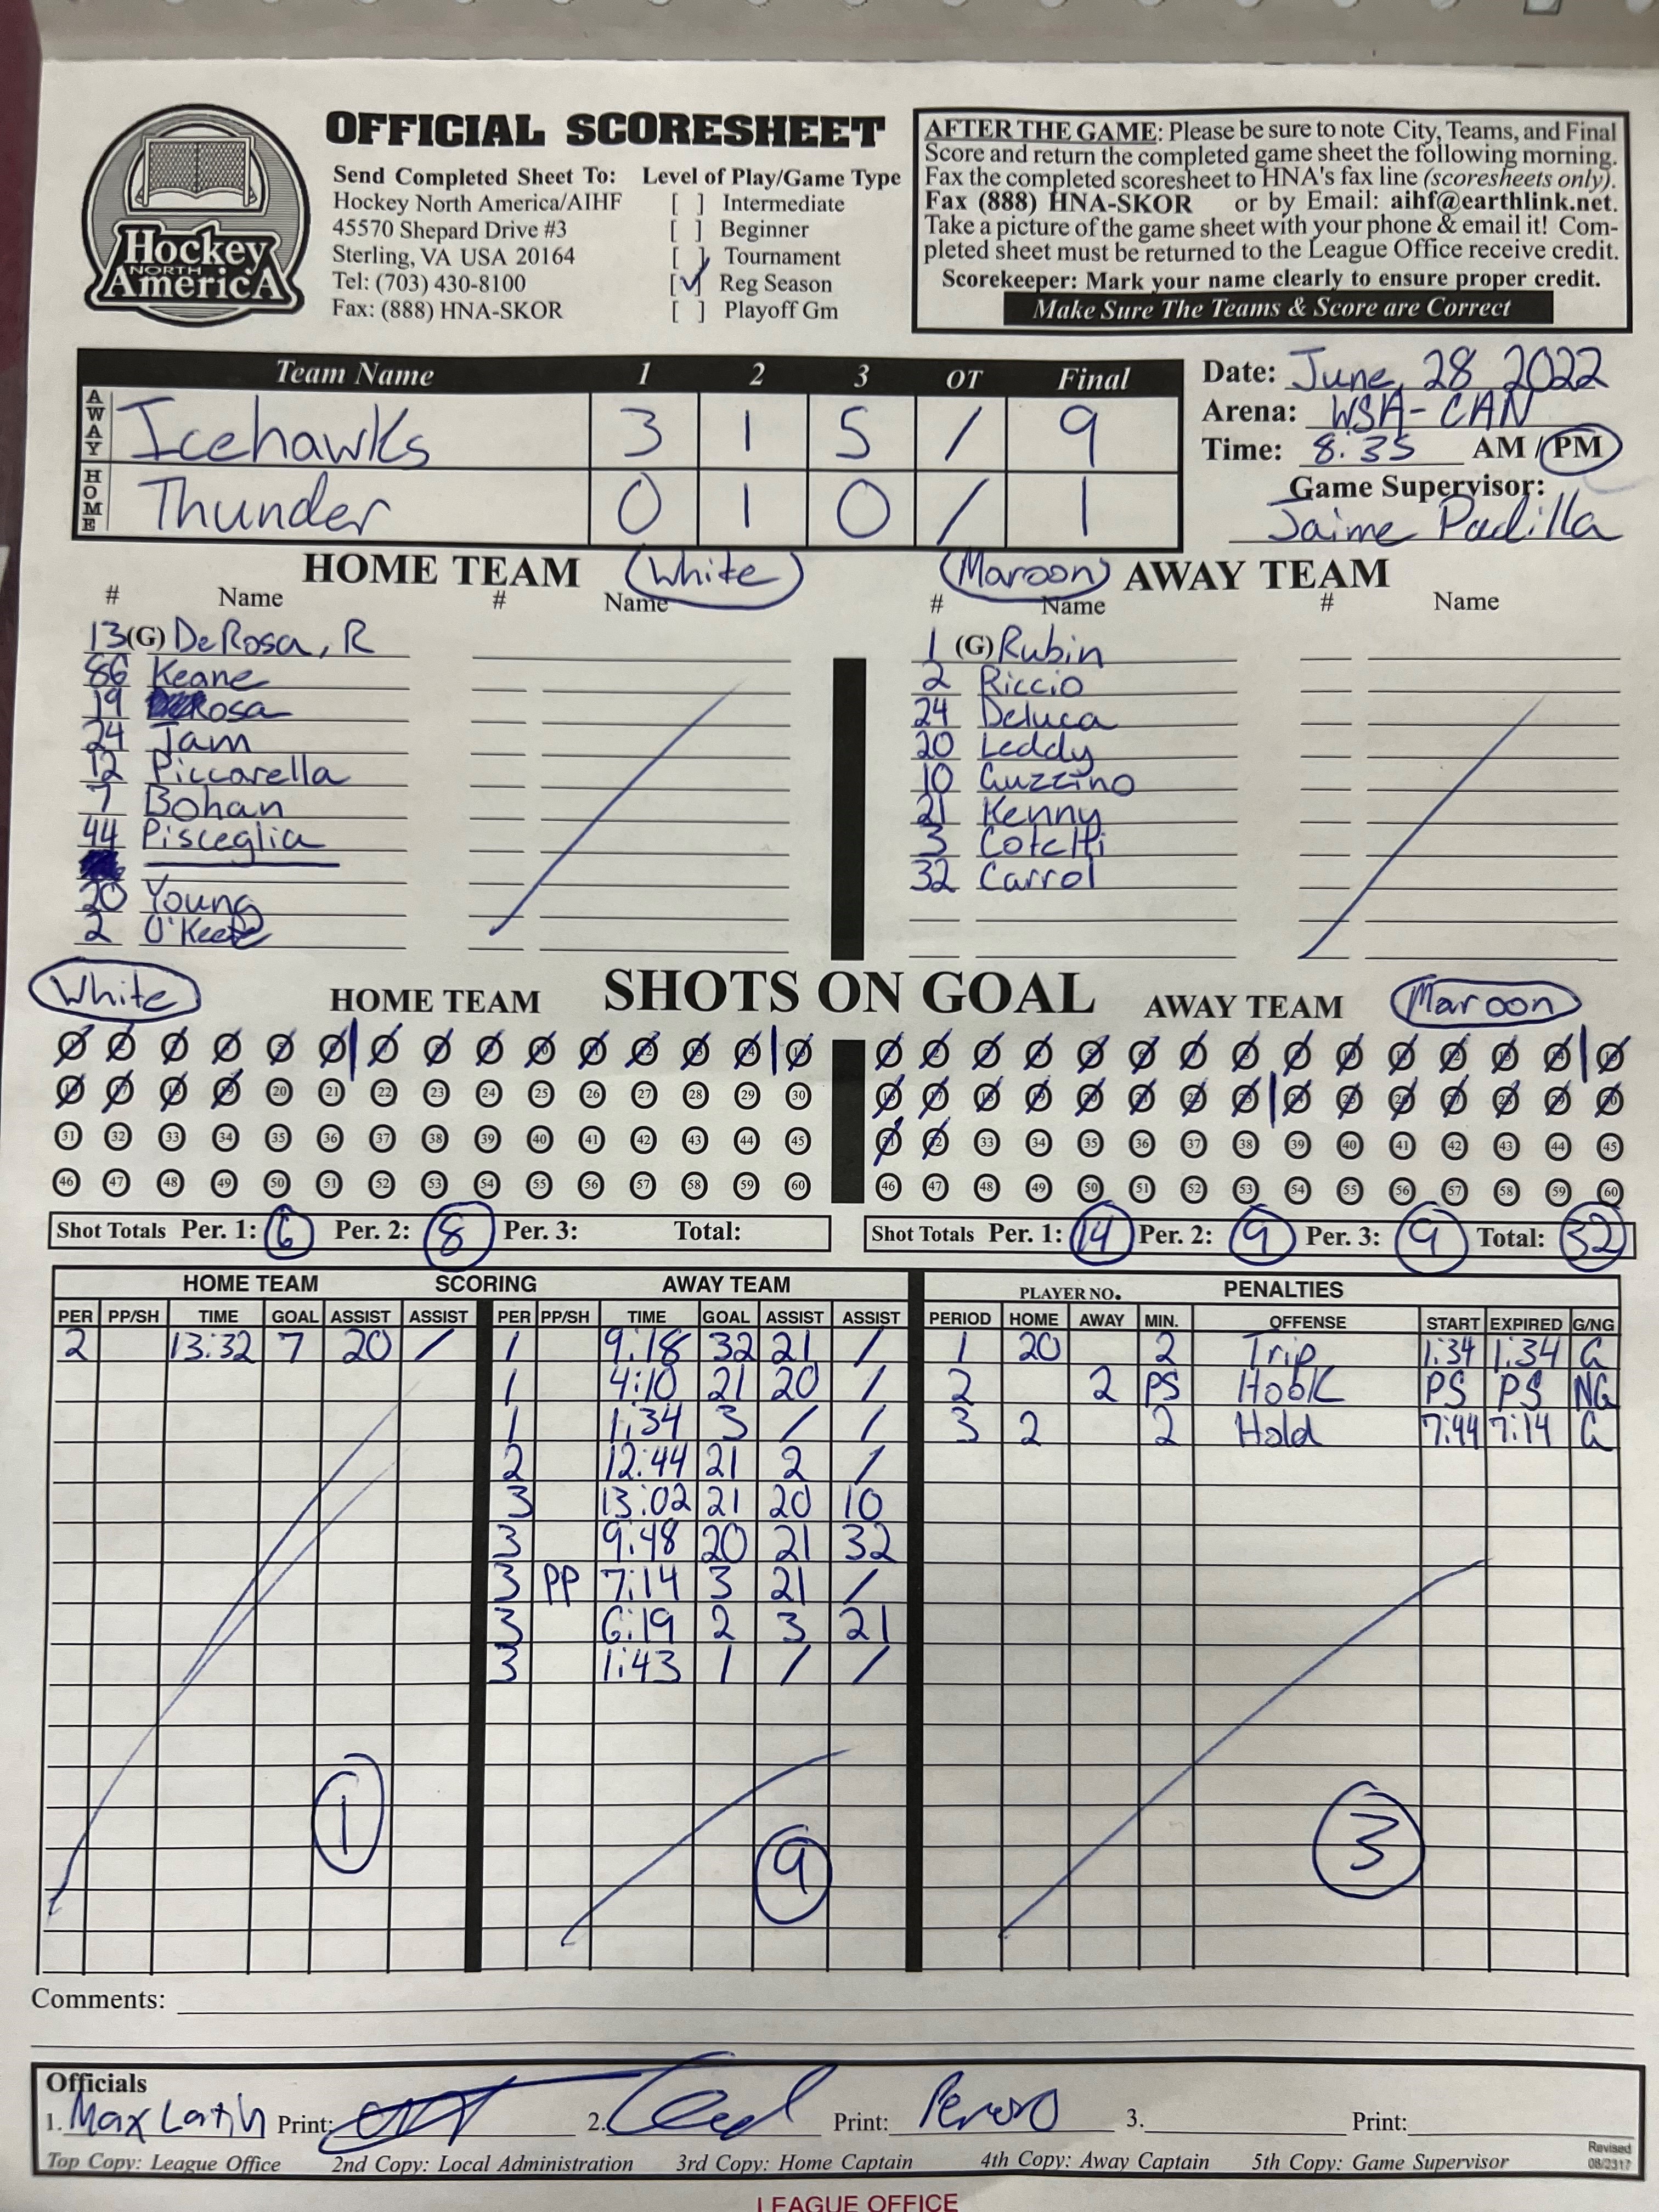 OFFICIAL SCORESHEET
Hockey
NORTH
AmericA
Send Completed Sheet To:
Hockey North America/AIHF
45570 Shepard Drive #3
Sterling, VA USA 20164
Tel: (703) 430-8100
Fax: (888) HNA-SKOR
Level of Play/Game Type
[ ] Intermediate
[ ] Beginner
[ ] Tournament
[✓] Reg Season
[ ] Playoff Gm
AFTER THE GAME: Please be sure to note City, Teams, and Final
Score and return the completed game sheet the following morning.
Fax the completed scoresheet to HNA's fax line (scoresheets only).
Fax (888) HNA-SKOR or by Email: aihf@earthlink.net.
Take a picture of the game sheet with your phone & email it! Com-
pleted sheet must be returned to the League Office receive credit.
Scorekeeper: Mark your name clearly to ensure proper credit.
Make Sure The Teams & Score are Correct
Team Name 1 2 3 OT Final
AWAY Icehawks 3 1 5 / 9
HOME Thunder 0 1 0 / 1
Date: June, 28 2022
Arena: WSA-CAN
Time: 8:35 AM / PM
Game Supervisor:
Jaime Padilla
HOME TEAM (White)
# Name # Name
13 (G) DeRosa, R
86 Keane
19 Rosa
24 Jam
12 Piccarella
7 Bohan
44 Pisceglia
20 Young
2 O'Keefe
(Maroon) AWAY TEAM
# Name # Name
1 (G) Rubin
2 Riccio
24 Deluca
20 Leddy
10 Guzzino
21 Kenny
3
32 Carrol
White HOME TEAM SHOTS ON GOAL AWAY TEAM Maroon
1 2 3 4 5 6 7 8 9 10 11 12 13 14 15
16 17 18 19 20 21 22 23 24 25 26 27 28 29 30
31 32 33 34 35 36 37 38 39 40 41 42 43 44 45
46 47 48 49 50 51 52 53 54 55 56 57 58 59 60
1 2 3 4 5 6 7 8 9 10 11 12 13 14 15
16 17 18 19 20 21 22 23 24 25 26 27 28 29 30
31 32 33 34 35 36 37 38 39 40 41 42 43 44 45
46 47 48 49 50 51 52 53 54 55 56 57 58 59 60
Shot Totals Per. 1: 6 Per. 2: 8 Per. 3: Total:
Shot Totals Per. 1: 14 Per. 2: 9 Per. 3: 9 Total: 32
HOME TEAM SCORING AWAY TEAM
PER PP/SH TIME GOAL ASSIST ASSIST
2 13:32 7 20 /
1
PER PP/SH TIME GOAL ASSIST ASSIST
1 9:18 32 21 /
1 4:10 21 20 /
1 1:34 3 / /
2 12:44 21 2 /
3 13:02 21 20 10
3 9:48 20 21 32
3 PP 7:14 3 21 /
3 6:19 2 3 21
3 1:43 1 / /
9
PLAYER NO. PENALTIES
PERIOD HOME AWAY MIN. OFFENSE START EXPIRED G/NG
1 20 2 Trip 1:34 1:34 G
2 2 PS Hook PS PS NG
3 2 2 Hold 7:44 7:14 G
3
Comments:
Officials
1. Max Print: 2. Print: 3. Print:
Top Copy: League Office 2nd Copy: Local Administration 3rd Copy: Home Captain 4th Copy: Away Captain 5th Copy: Game Supervisor
Revised
08/2317
LEAGUE OFFICE